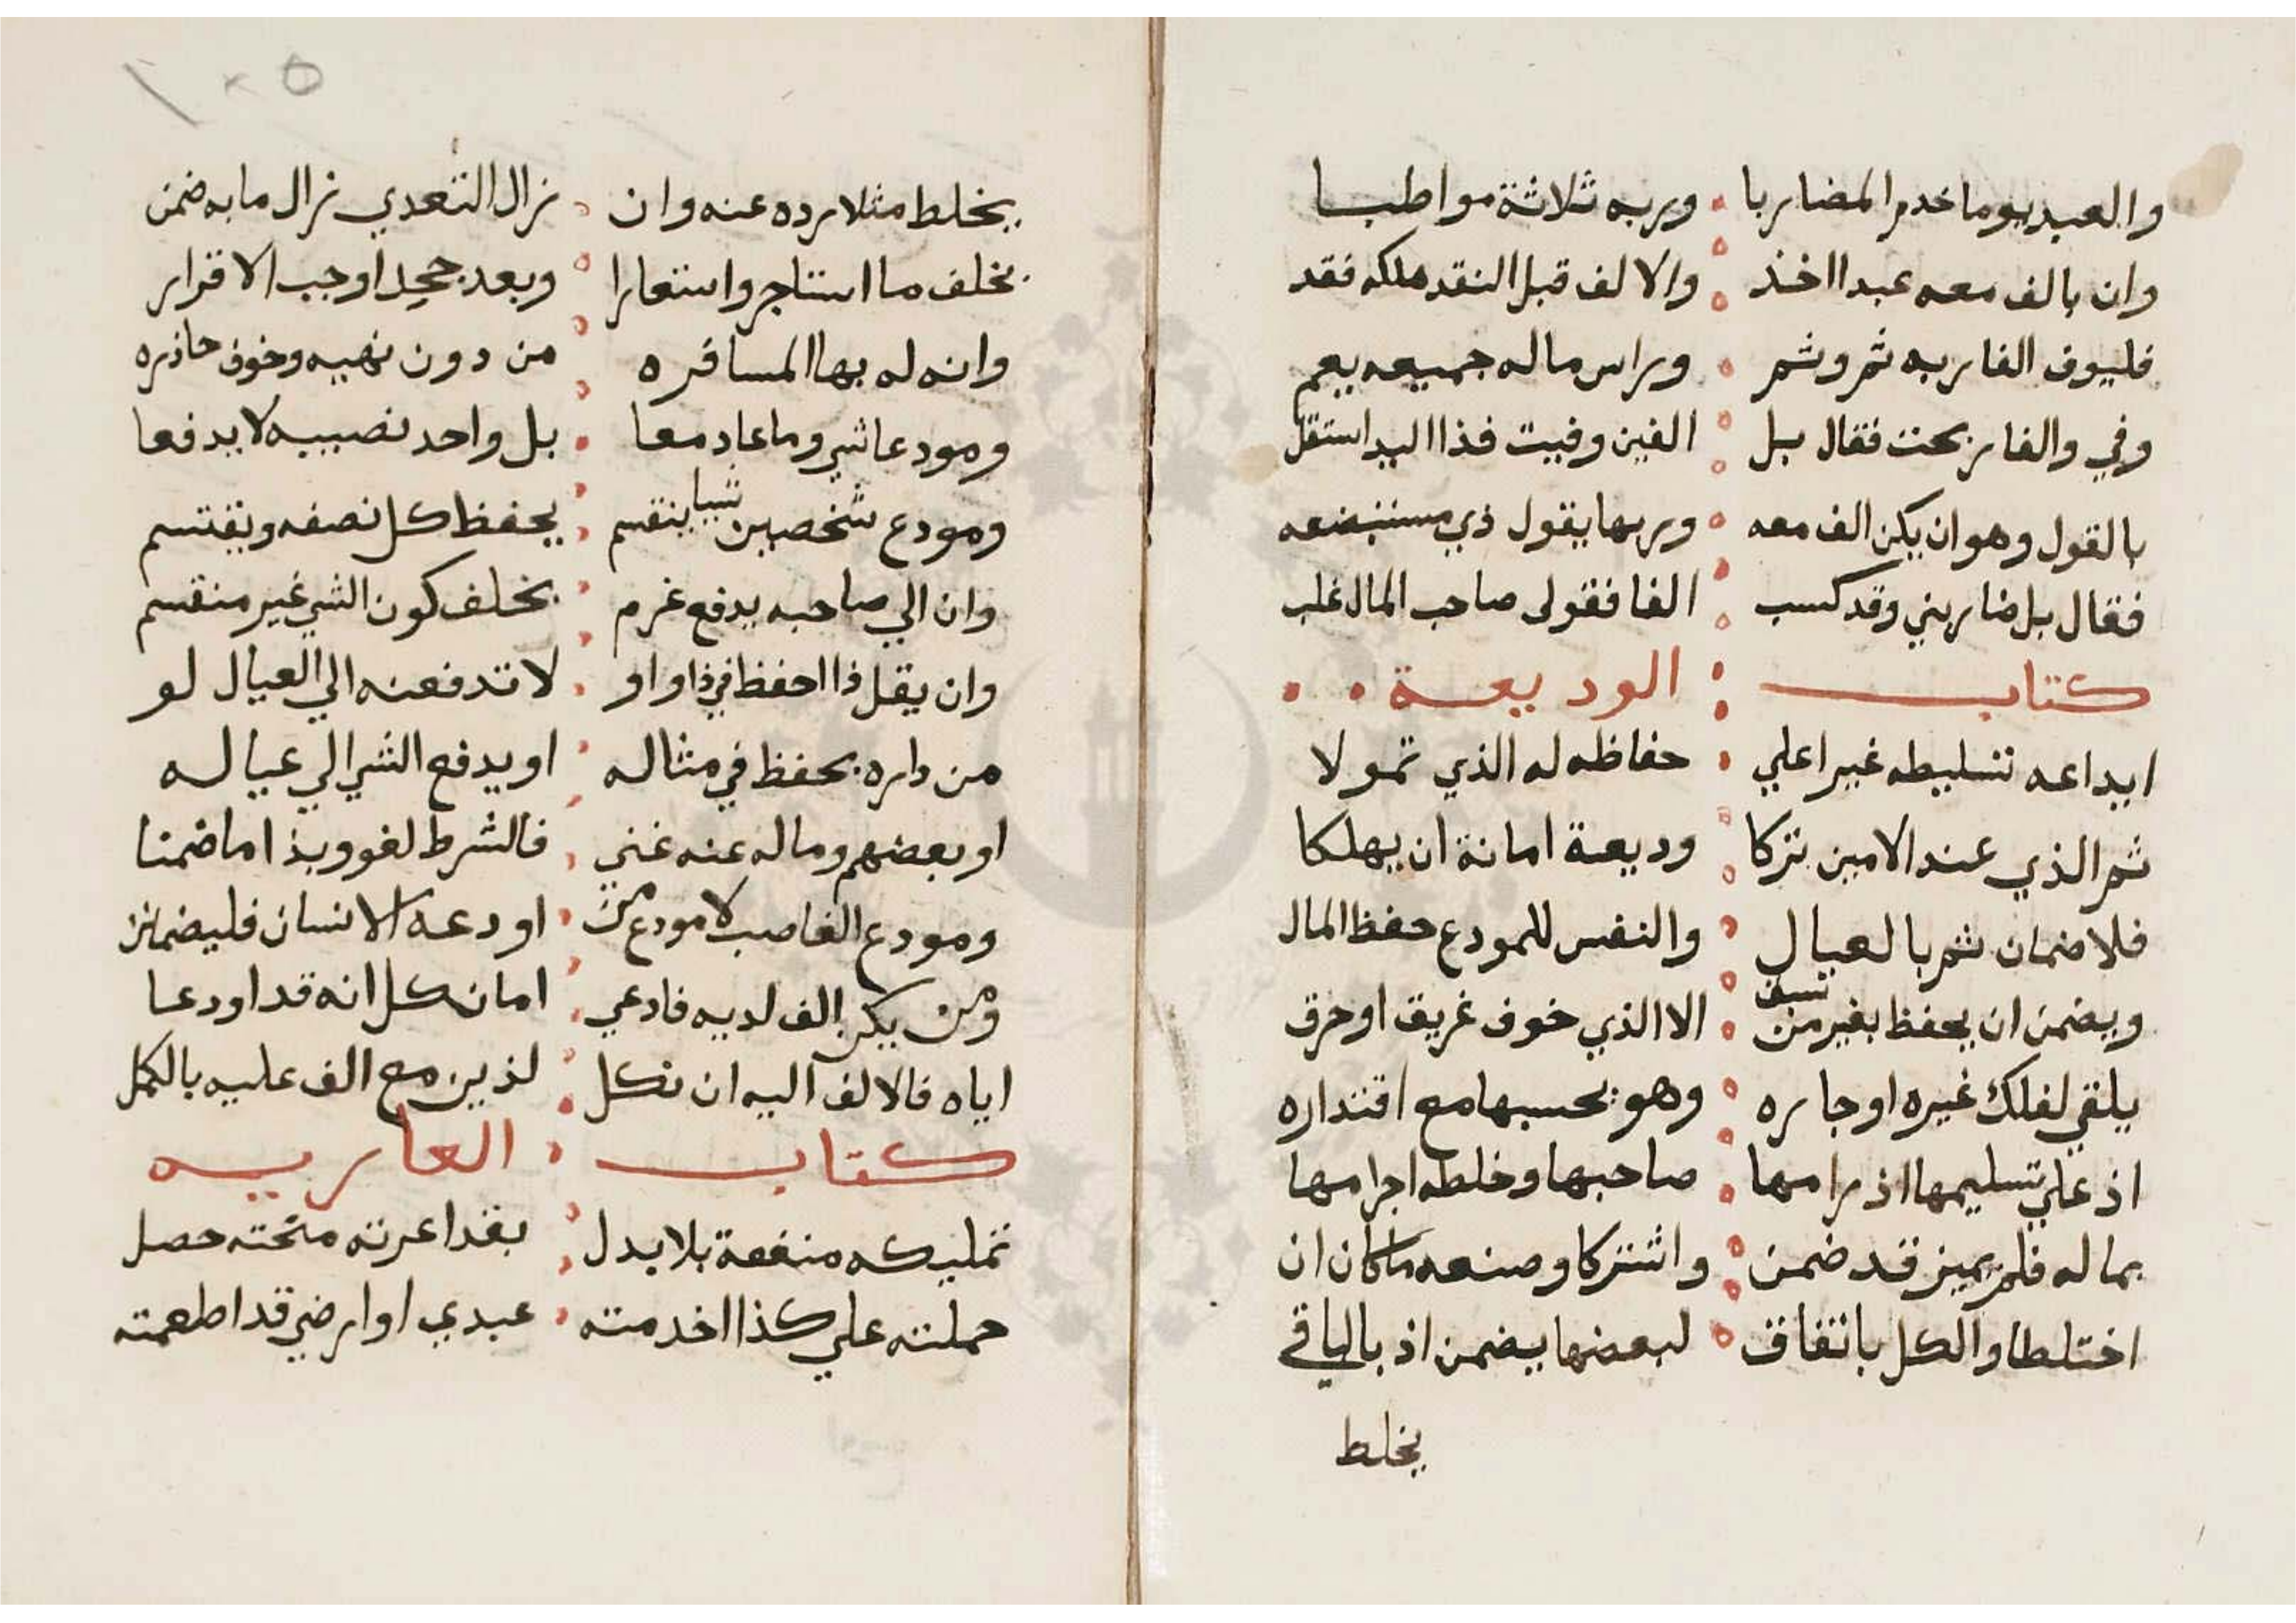 والعبد يوما خدم المضاربا وربه ثلاثة مواطبا
وان بالف معه عبدا اخذ والالف قبل النقد هلكه فقد
فليوف الفا ربه ثم وثم وراس ماله جميعه يعم
وفي والفا ربحت فقال بل الفين وفيت فذا اليد استقل
بالقول وهو ان يكن الف معه وربها يقول ذي مستبضعه
فقال بل ضاربني وقد كسب الفا فقولى صاحب المال غلب
كتاب الوديعة
ايداعه تسليطه غيرا علي حفاظه له الذي تمولا
ثم الذي عند الامين تركا وديعة امانة ان يهلكا
فلا ضمان ثم بالعيال والنفس للمودع حفظ المال
ويضمن ان يحفظ بغير من الا الذي خوف غريق او حرق
يلقي لفلك غيره او جاره وهو بحسبها مع اقتداره
اذ علي تسليمها اذ رامها صاحبها وخلطه اجرامها
بماله فلم يميز قد ضمن واشتركا وصنعه ما كان ان
اختلطا والكل باتفاق لبعضها يضمن اذ بالباقي
يخلط
١٠٥
يخلط مثلا رده عنه وان زال التعدي زال ما به ضمن
بخلف ما استاجر واستعارا وبعد جحد اوجب الاقرار
وانه له بها المسافره من دون نهيه وخوف حاذره
ومودعا شي وما عاد معا بل واحد نصيبه لا يدفعا
ومودع شخصين شيا ينقسم يحفظ كل نصفه ويقتسم
وان الي صاحبه يدفع غرم بخلف كون الشي غير منقسم
وان يقل ذا احفظ في ذا او او لا تدفعنه الي العيال لو
من داره بحفظ في مثاله او يدفع الشي الي عياله
او بعضهم وماله عنه غني فالشرط لغو وبذا ما ضمنا
ومودع الغاصب لا مودع من اودعه الانسان فليضمنن
ومن يكن الف لديه فادعي امان كل انه قد اودعا
اياه فالالف اليه ان نكل لذين مع الف عليه بالكمل
كتاب العاريه
تمليكه منفعة بلا بدل بقد اعرته منحته حصل
حملته علي كذا اخدمته عبدي او ارضي قد اطعمته